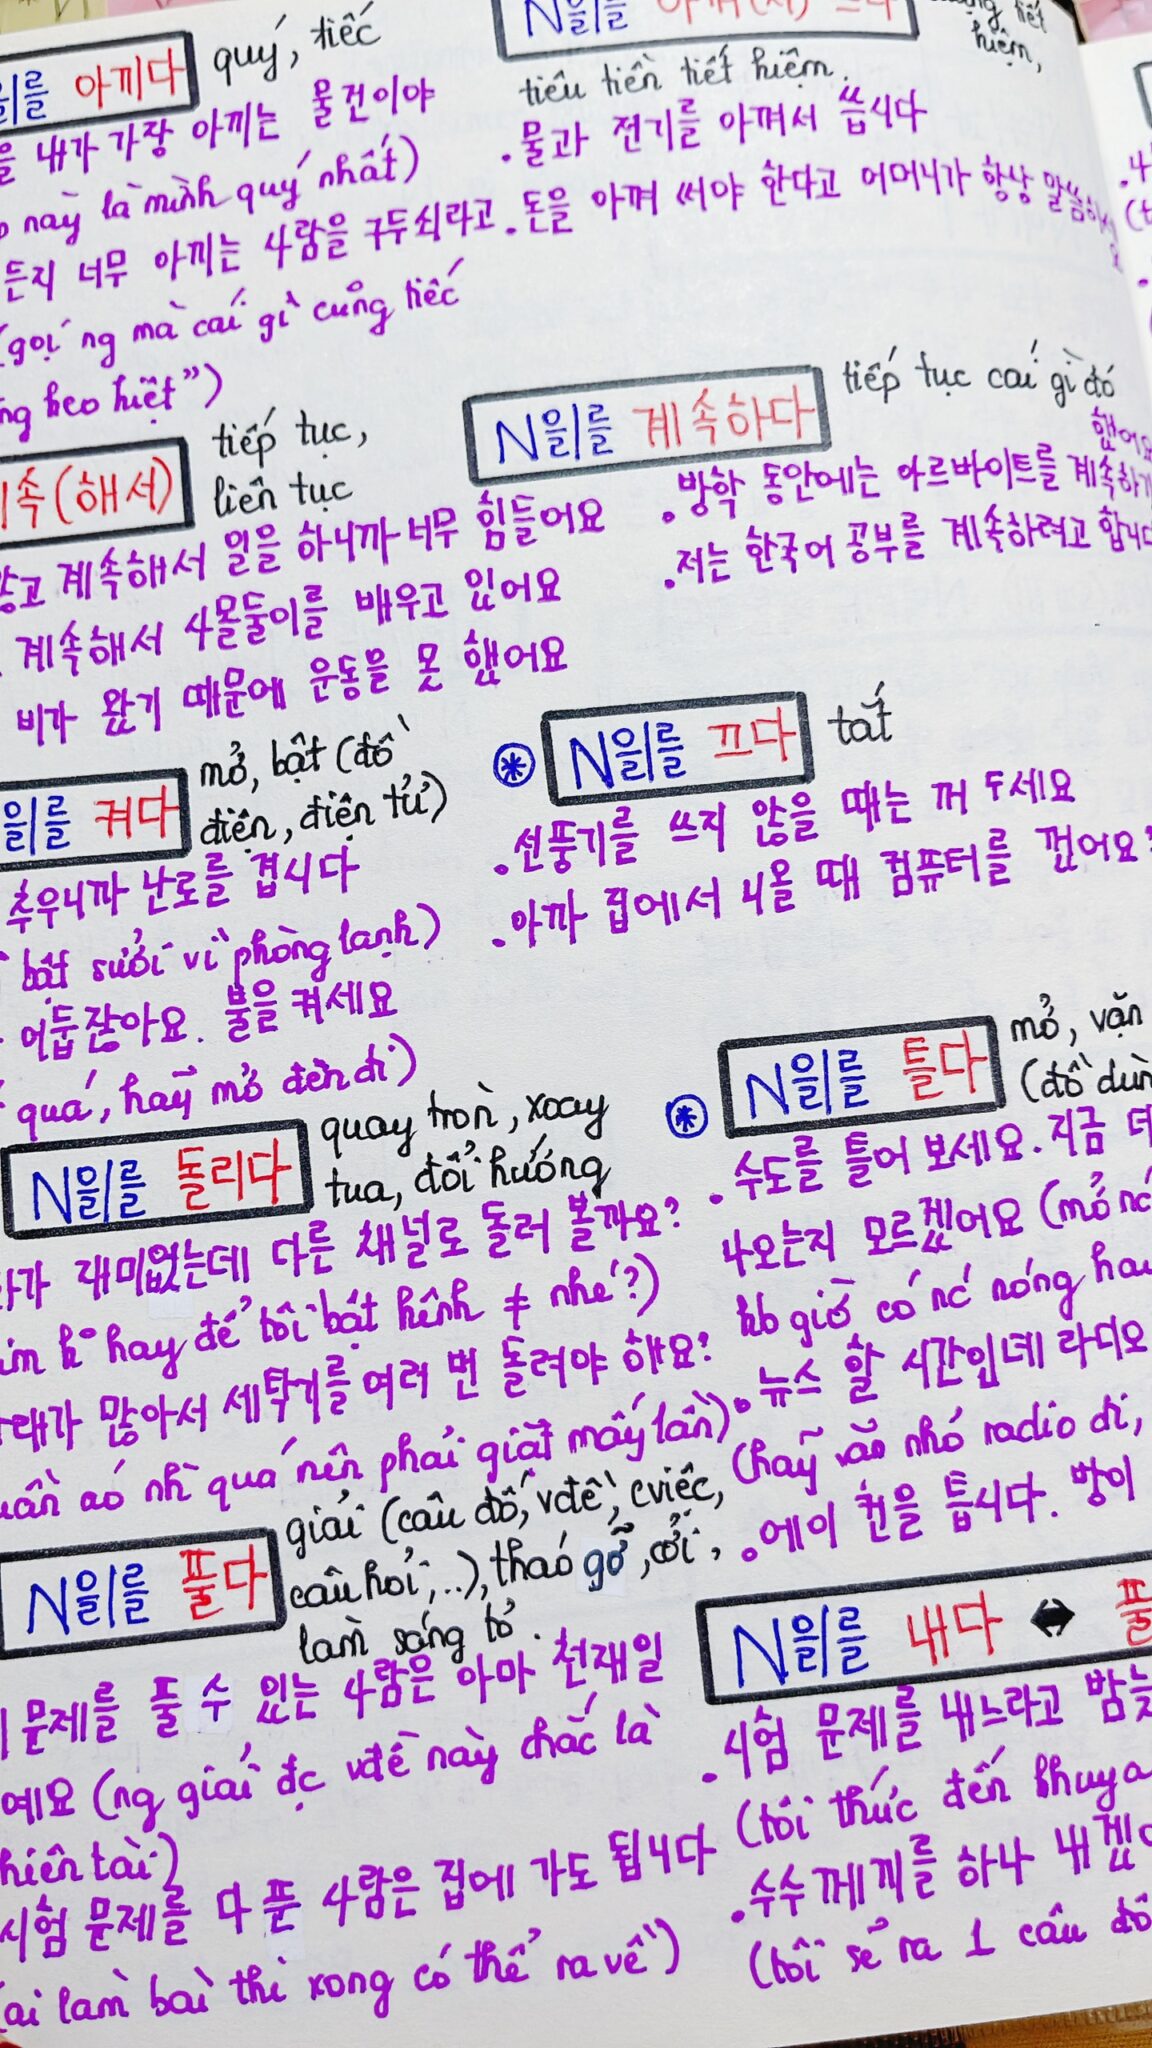 을/를 아끼다 quý, tiếc
내가 가장 아끼는 물건이야
này là mình quý nhất)
든지 너무 아끼는 사람을 구두쇠라고
(gọi ng mà cái gì cũng tiếc
keo kiệt")
N을/를
tiêu tiền tiết kiệm.
. 물과 전기를 아껴서 씁시다
. 돈을 아껴 써야 한다고 어머니가 항상
속(해서) tiếp tục,
liên tục
계속해서 일을 하니까 너무 힘들어요
계속해서 사물둘이를 배우고 있어요
비가 왔기 때문에 운동을 못 했어요
N을/를 계속하다 tiếp tục cái gì đó
. 방학 동안에는 아르바이트를
. 저는 한국어 공부를 계속하려고 합니다
을/를 켜다 mở, bật (đồ
điện, điện tử)
추우니까 난로를 켭시다
bật sưởi vì phòng lạnh)
어둡잖아요. 불을 켜세요
quá, hãy mở đèn đi)
* N을/를 끄다 tắt
. 선풍기를 쓰지 않을 때는 꺼 두세요
. 아까 집에서 나올 때 컴퓨터를 껐어요?
N을/를 돌리다 quay tròn, xoay
tua, đổi hướng
재미없는데 다른 채널로 돌려 볼까요?
hay để tôi bật kênh ≠ nhé?)
많아서 세탁기를 여러 번 돌려야 해요?
quần áo nh quá nên phải giặt mấy lần)
* N을/를 틀다 mở, vặn
(đồ dùn
. 수도를 틀어 보세요. 지금
나오는지 모르겠어요 (mở
kb giờ có nc nóng hay
. 뉴스 할 시간인데 라디오
(hãy vặn nhỏ radio đi,
. 에이 컨을 틉시다. 방이
N을/를 풀다 giải (câu đố, vđề, cviệc,
câu hỏi,...), tháo gỡ, cởi,
làm sáng tỏ.
문제를 풀 수 있는 사람은 아마 천재일
예요 (ng giải đc vđề này chắc là
thiên tài)
시험 문제를 다 푼 사람은 집에 가도 됩니다
(ai làm bài thi xong có thể ra về)
N을/를 내다 ↔ 풀
. 시험 문제를 내느라고 밤늦
(tôi thức đến khuya
. 수수께끼를 하나 내겠
(tôi sẽ ra 1 câu đố